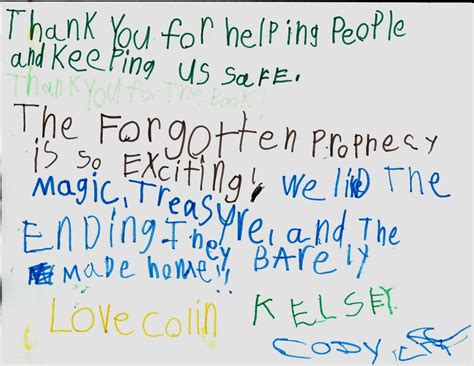 Thank You for helping People
and Keeping us safe.
Thank you for The Book!
The Forgotten Prophecy
is so Exciting! We liked The
Magic, Treasure, and The
Ending. They Barely
made home!!
Love Colin
KELSEY
CODY